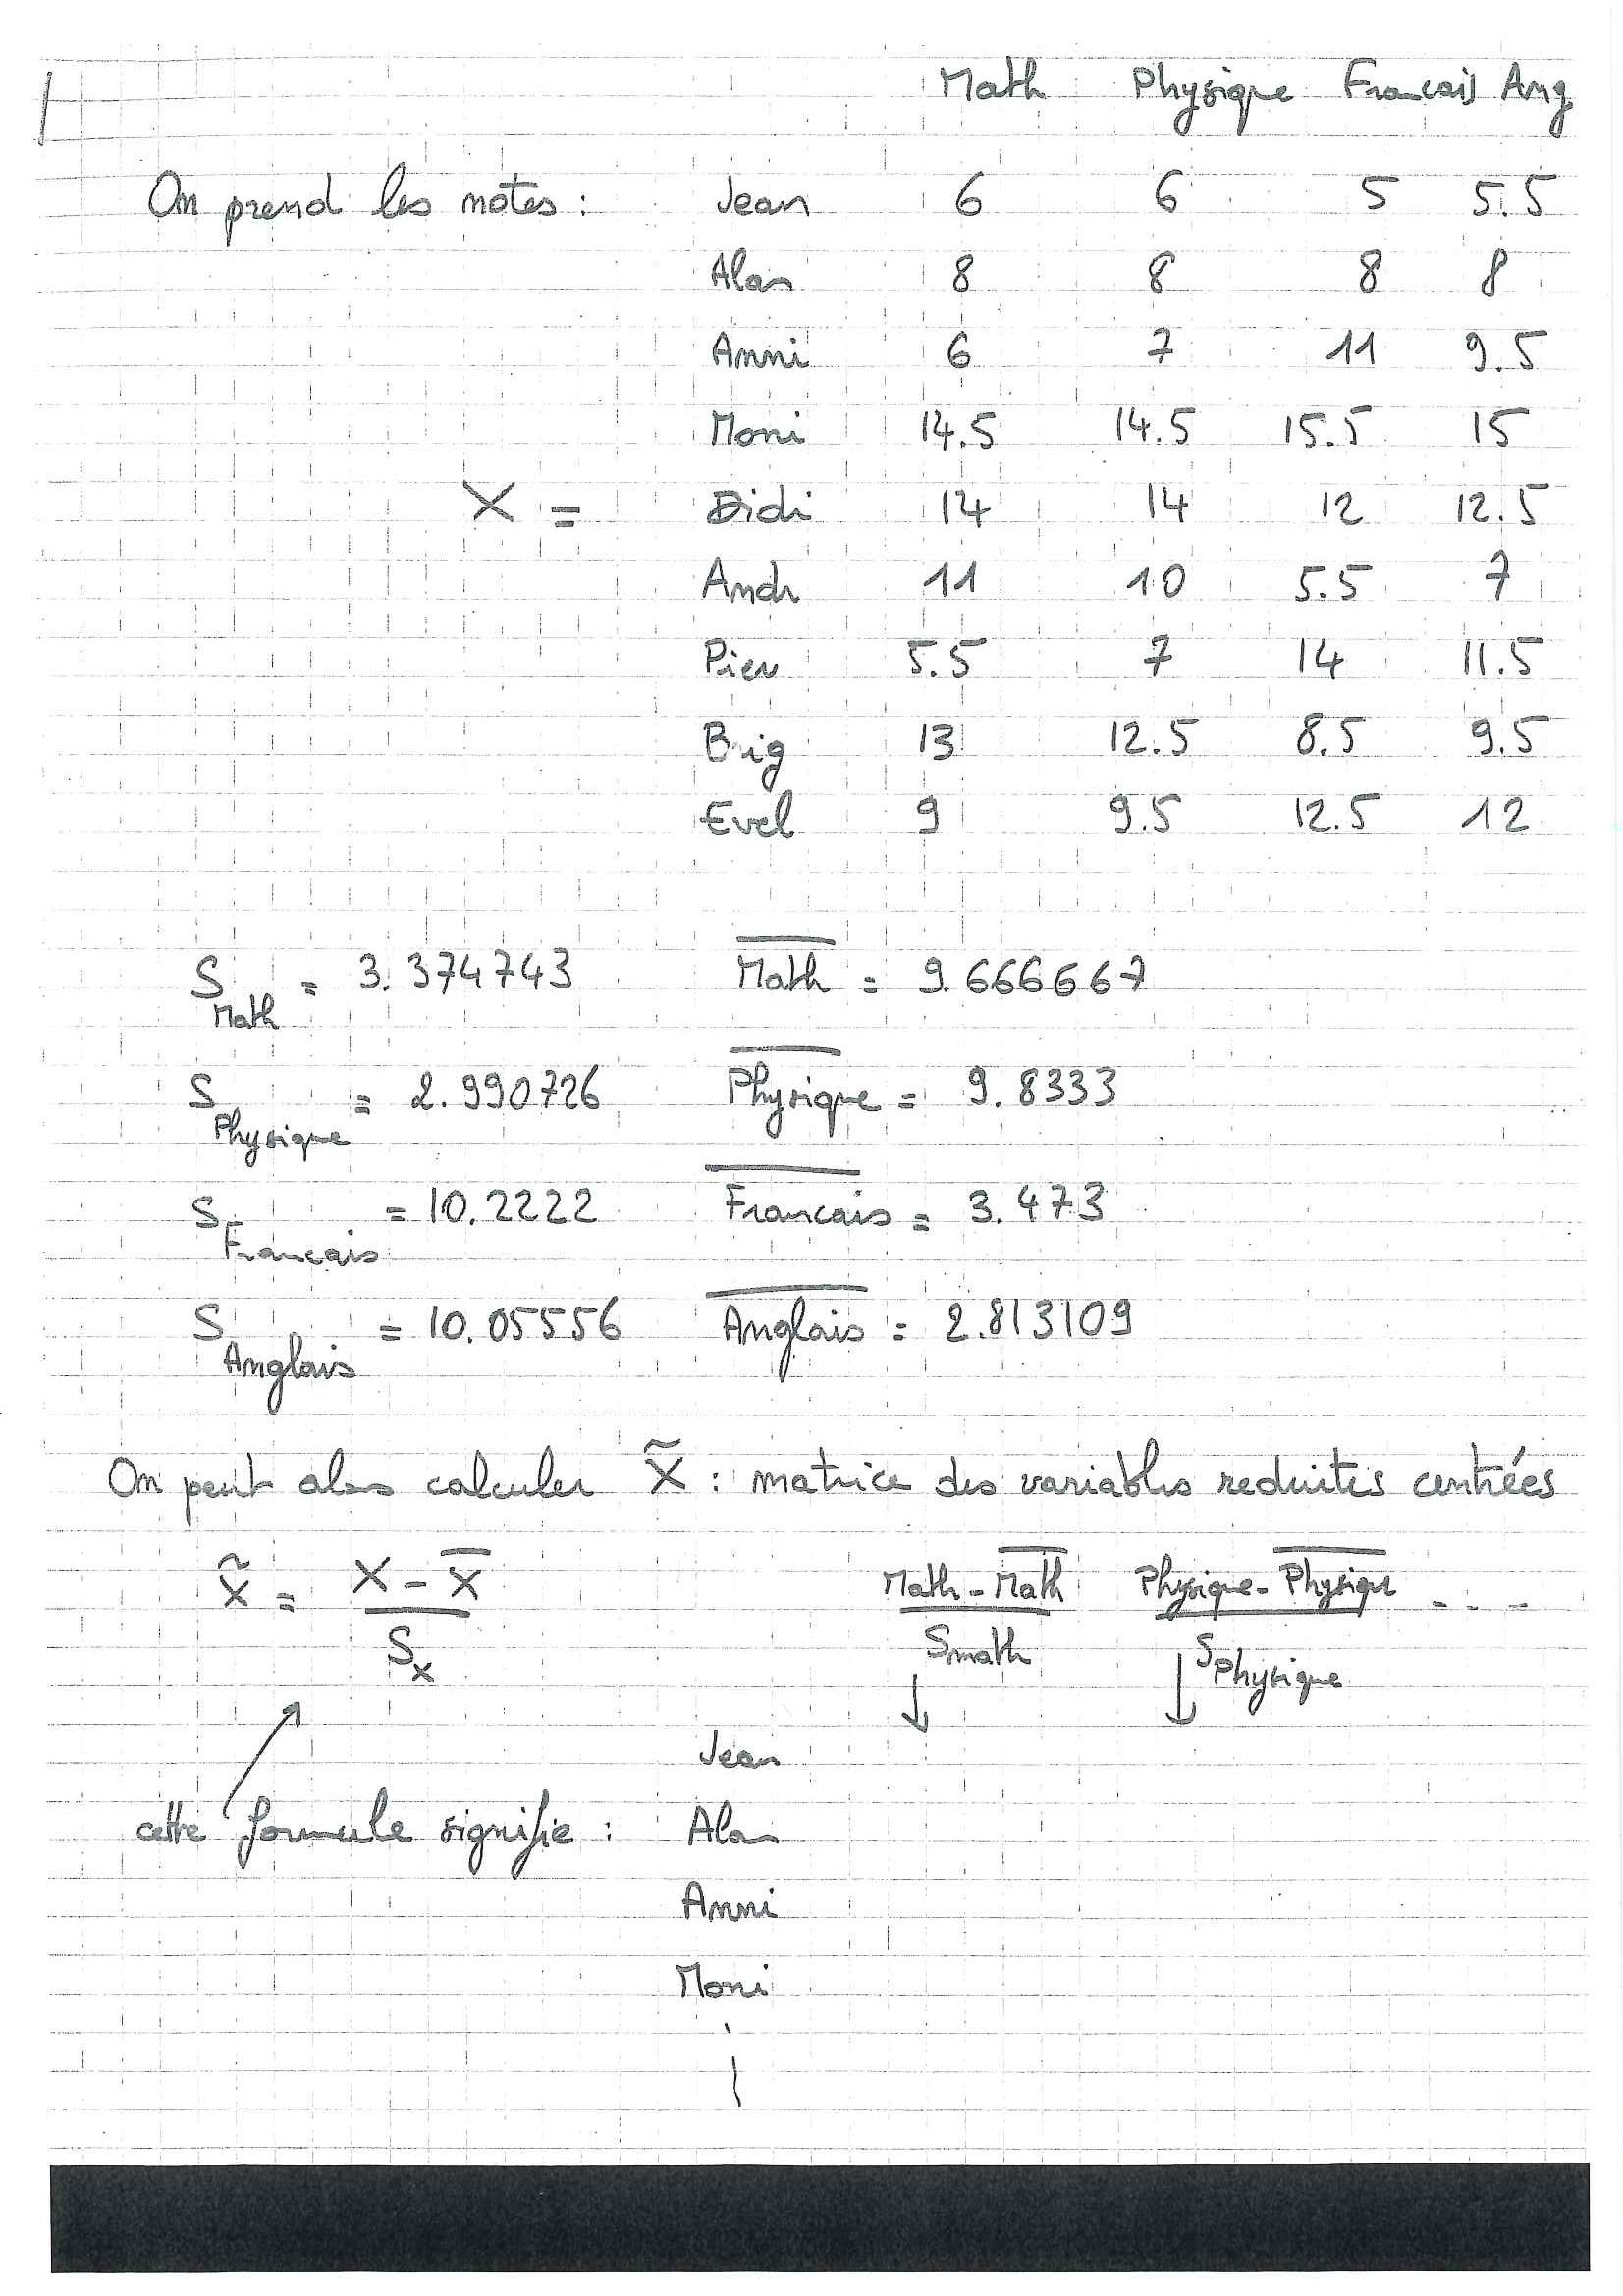 Math Physique Francais Ang
On prend les notes : Jean 6 6 5 5.5
Alan 8 8 8 8
Anni 6 7 11 9.5
Moni 14.5 14.5 15.5 15
X = Didi 14 14 12 12.5
Andr 11 10 5.5 7
Pier 5.5 7 14 11.5
Brig 13 12.5 8.5 9.5
Evel 9 9.5 12.5 12
S_Math = 3.374743 \overline{Math} = 9.666667
S_Physique = 2.990726 \overline{Physique} = 9.8333
S_Francais = 10.2222 \overline{Francais} = 3.473
S_Anglais = 10.05556 \overline{Anglais} = 2.813109
On peut alors calculer X̃ : matrice des variables reduites centrées
X̃ = (X - X̄) / S_x (Math - \overline{Math}) / S_math ↓ (Physique - \overline{Physique}) / S_Physique ↓ ...
Jean
cette formule signifie : Alan
Anni
Moni